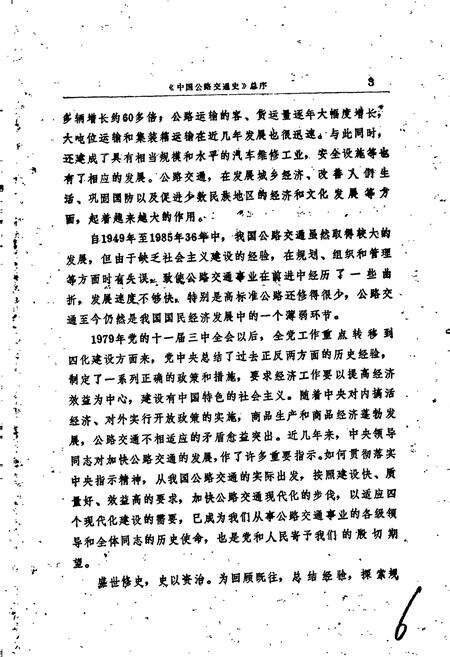 《中国公路交通史》总序 3
多辆增长约60多倍，公路运输的客、货运量逐年大幅度增长，
大吨位运输和集装箱运输在近几年发展也很迅速。与此同时，
还建成了具有相当规模和水平的汽车维修工业，安全设施等也
有了相应的发展。公路交通，在发展城乡经济、改善人们生
活、巩固国防以及促进少数民族地区的经济和文化发展等方
面，起着越来越大的作用。
自1949年至1985年36年中，我国公路交通虽然取得较大的
发展，但由于缺乏社会主义建设的经验，在规划、组织和管理
等方面时有失误，致使公路交通事业在前进中经历了一些曲
折，发展速度不够快，特别是高标准公路还修得很少，公路交
通至今仍然是我国国民经济发展中的一个薄弱环节。
1979年党的十一届三中全会以后，全党工作重点转移到
四化建设方面来，党中央总结了过去正反两方面的历史经验，
制定了一系列正确的政策和措施，要求经济工作要以提高经济
效益为中心，建设有中国特色的社会主义。随着中央对内搞活
经济、对外实行开放政策的实施，商品生产和商品经济蓬勃发
展，公路交通不相适应的矛盾愈益突出。近几年来，中央领导
同志对加快公路交通的发展，作了许多重要指示。如何贯彻落实
中央指示精神，从我国公路交通的实际出发，按照建设快、质
量好、效益高的要求，加快公路交通现代化的步伐，以适应四
个现代化建设的需要，已成为我们从事公路交通事业的各级领
导和全体同志的历史使命，也是党和人民寄予我们的殷切期
望。
盛世修史，史以资治。为回顾既往，总结经验，探索规
6